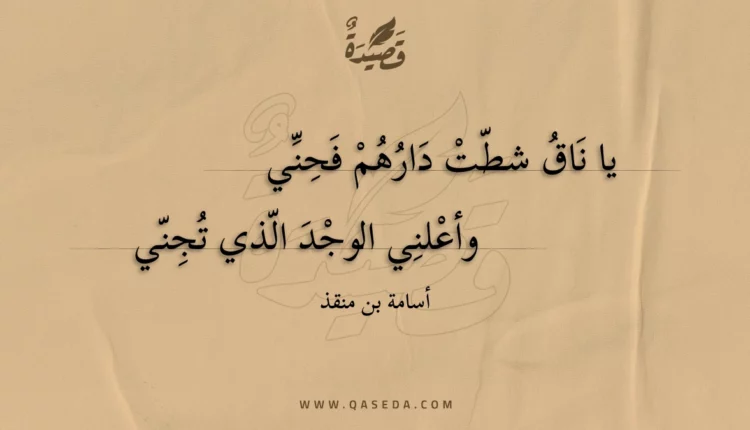 قَصِيْدَةٌ
يا نَاقُ شطّتْ دَارُهُمْ فَحِنِّي
وأعْلنِي الوجْدَ الّذي تُجِنّي
أسامة بن منقذ
WWW.QASEDA.COM